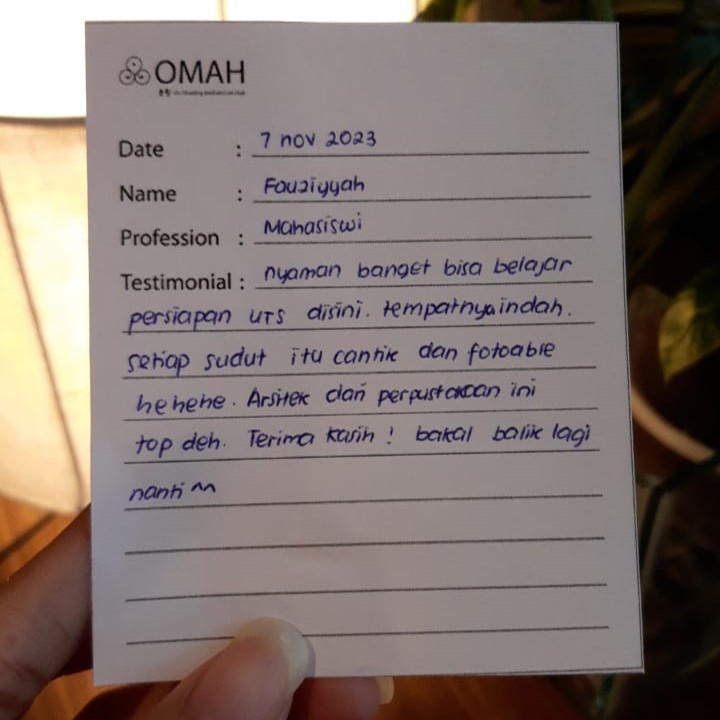 OMAH
Date : 7 nov 2023
Name : Fauziyyah
Profession : Mahasiswi
Testimonial : nyaman banget bisa belajar
persiapan UTS disini. tempatnya indah.
setiap sudut itu cantik dan fotoable
hehehe. Arsitek dari perpustakaan ini
top deh. Terima kasih ! bakal balik lagi
nanti ^^